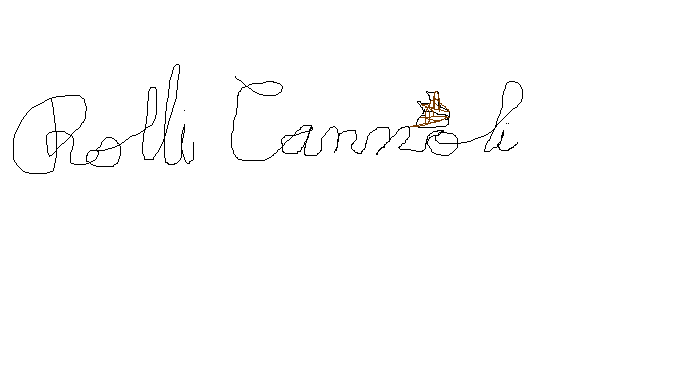 Rolli Cannoli